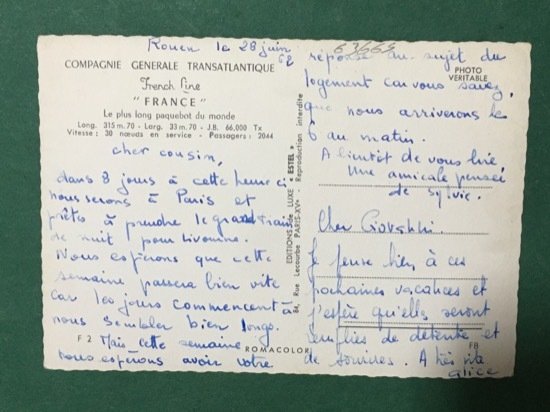 Rouen le 28 juin 62
COMPAGNIE GENERALE TRANSATLANTIQUE
French Line
"FRANCE"
Le plus long paquebot du monde
Long. 315 m. 70 - Larg. 33 m. 70 - J.B. 66,000 Tx
Vitesse : 30 nœuds en service - Passagers : 2044
cher cousin,
dans 8 jours à cette heure ci
nous serons à Paris et
prêtes à prendre le grand train
de nuit pour Livourne.
Nous espérons que cette
semaine passera bien vite
car les jours commencent à
nous sembler bien longs.
Mais cette semaine
nous espérons avoir votre
F 2
ROMACOLOR
EDITIONS de LUXE « ESTEL »
Reproduction interdite
84, Rue Lecourbe PARIS-XV°
63663
PHOTO
VERITABLE
réponse au sujet du
logement car vous savez
que nous arriverons le
6 au matin.
A bientôt de vous lire
Une amicale pensée
de Sylvie.
Cher
Je pense bien à ces
prochaines vacances et
j'espère qu'elles seront
remplies de détente et
de sourires. A très vite
FB